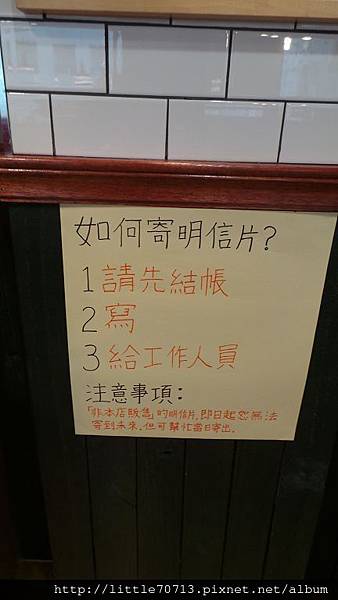 如何寄明信片?
1 請先結帳
2 寫
3 給工作人員
注意事項:
「非本店販售」的明信片,即日起恕無法
寄到未來,但可幫忙當日寄出.
http://little70713.pixnet.net/album